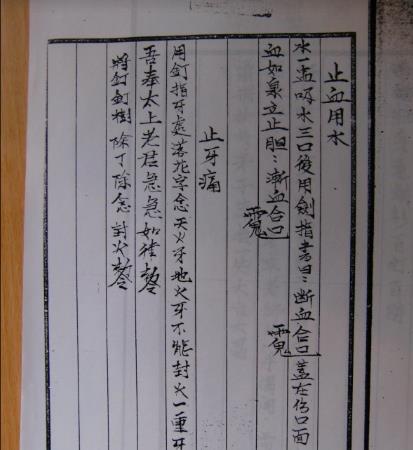 止血用水
水一盅吸水三口後用劍指書曰：断血合口蓋在伤口面
血如泉立止胆：漸血合口
止牙痛
用釘指牙處落花字念天火牙地火牙不能封火一重牙
吾奉太上老君急急如律
將釘釘樹除了除念封火